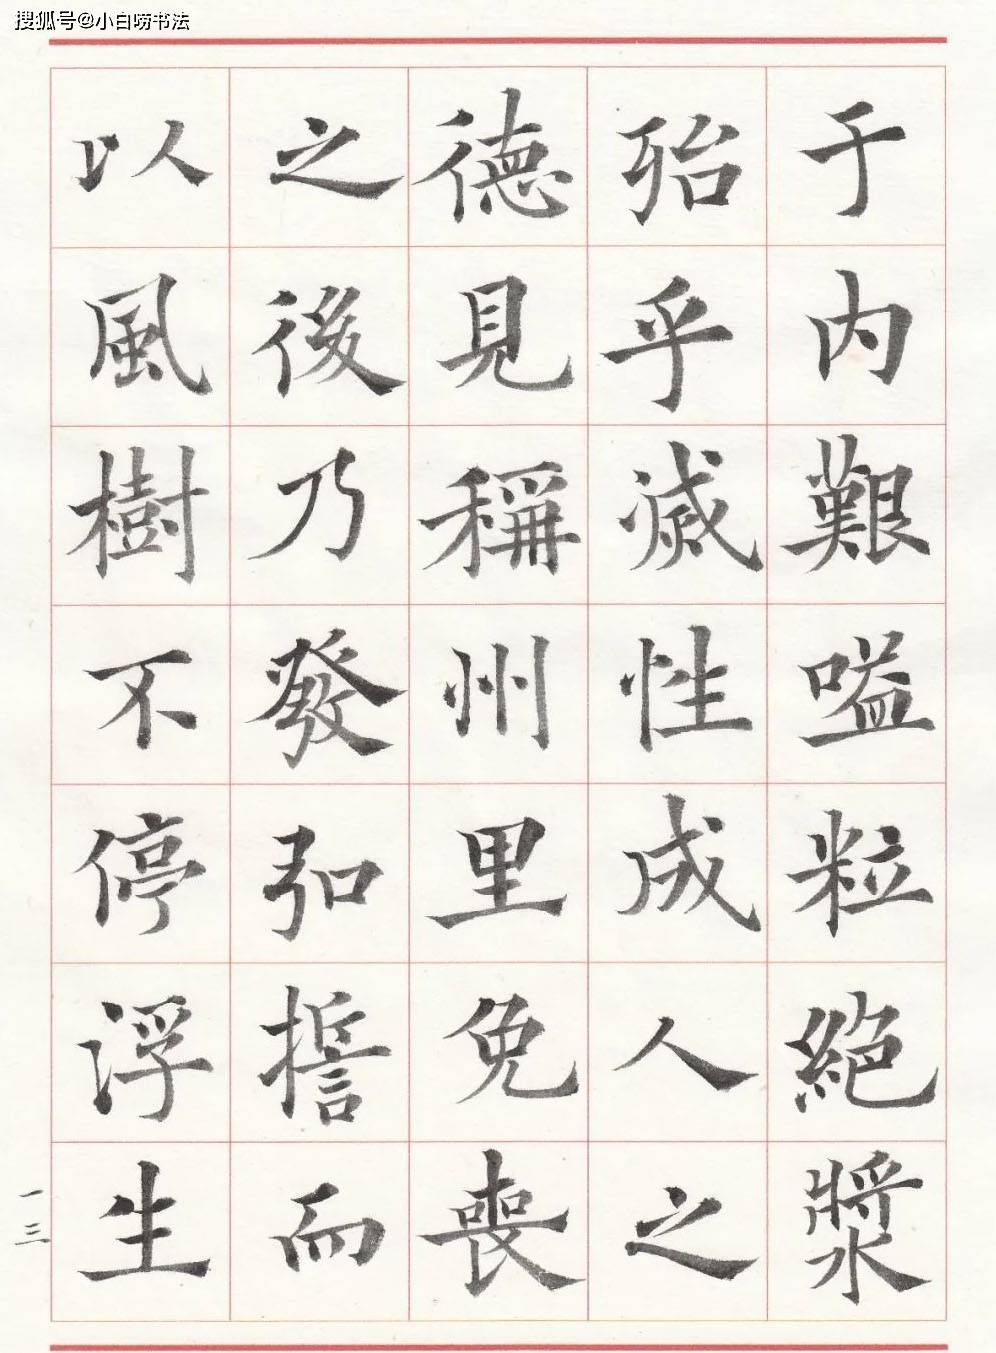 搜狐号@小白唠书法
于内艱嗌粒絕漿
殆乎滅性成人之
德見稱州里免喪
之後乃發弘誓而
以風樹不停浮生
一三